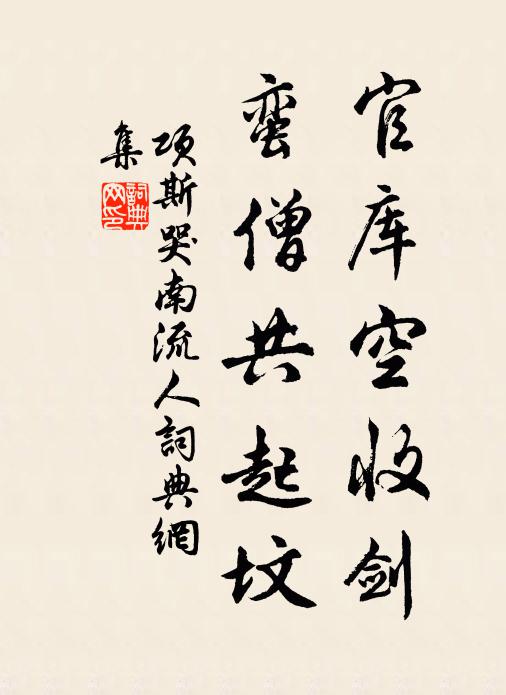 官库空收剑
蛮僧共起坟
项斯哭南流人詞典網
集
詞典
网印